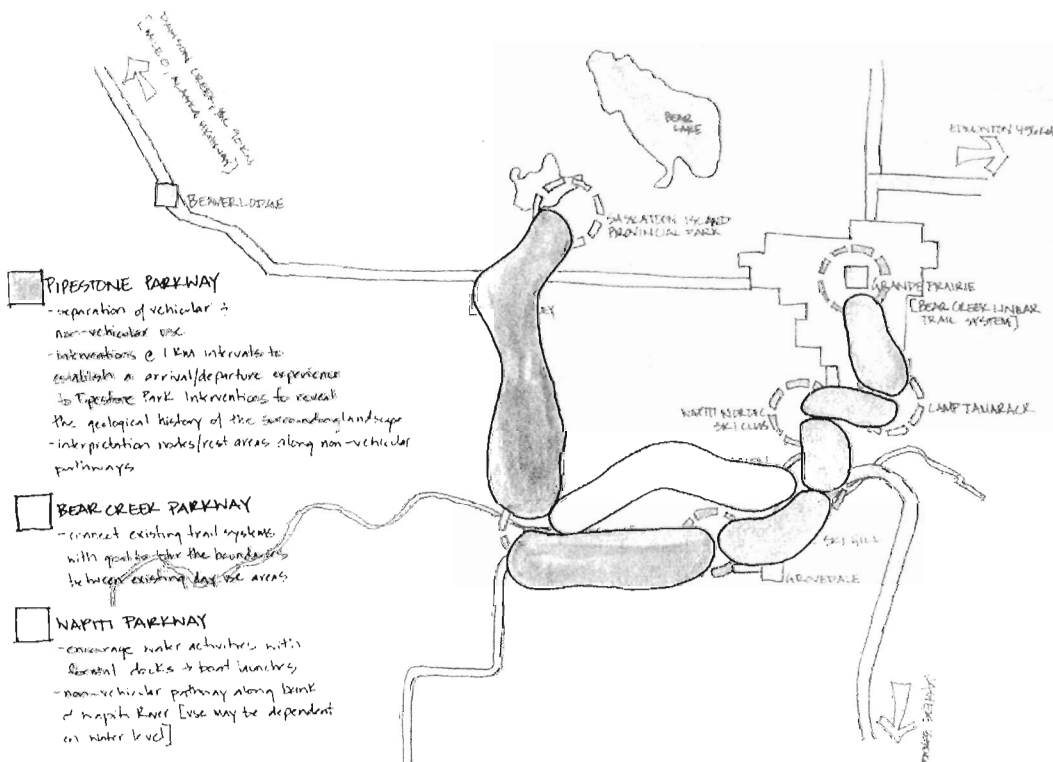 DAWSON CREEK, BC
[MILE 0, ALASKA HIGHWAY]
BEAR
LAKE
EDMONTON
BEAVERLODGE
SASKATOON ISLAND
PROVINCIAL PARK
GRANDE PRAIRIE
[BEAR CREEK LINEAR
TRAIL SYSTEM]
PIPESTONE PARKWAY
-separation of vehicular +
non-vehicular use
-interventions @ 1 KM intervals to
establish a arrival/departure experience
to Pipestone Park Interventions to reveal
the geological history of the surrounding landscape
-interpretation nodes/rest areas along non-vehicular
pathways
EY
WAPITI NORDIC
SKI CLUB
CAMP TAMARACK
BEAR CREEK PARKWAY
-connect existing trail systems
with goal to blur the boundaries
between existing day use areas
SKI HILL
GROVEDALE
WAPITI PARKWAY
-encourage water activities with
formal docks + boat launches
-non-vehicular pathway along bank
of Wapiti River [use may be dependent
on water level]